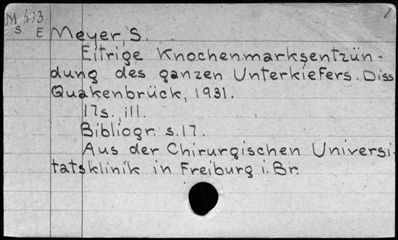 M 413
S E
Meyer, S.
Eitrige Knochenmarksentzün-
dung des ganzen Unterkiefers. Diss
Quakenbrück, 1931.
17s. ill.
Bibliogr. s. 17.
Aus der Chirurgischen Universi-
tatsklinik in Freiburg i. Br.